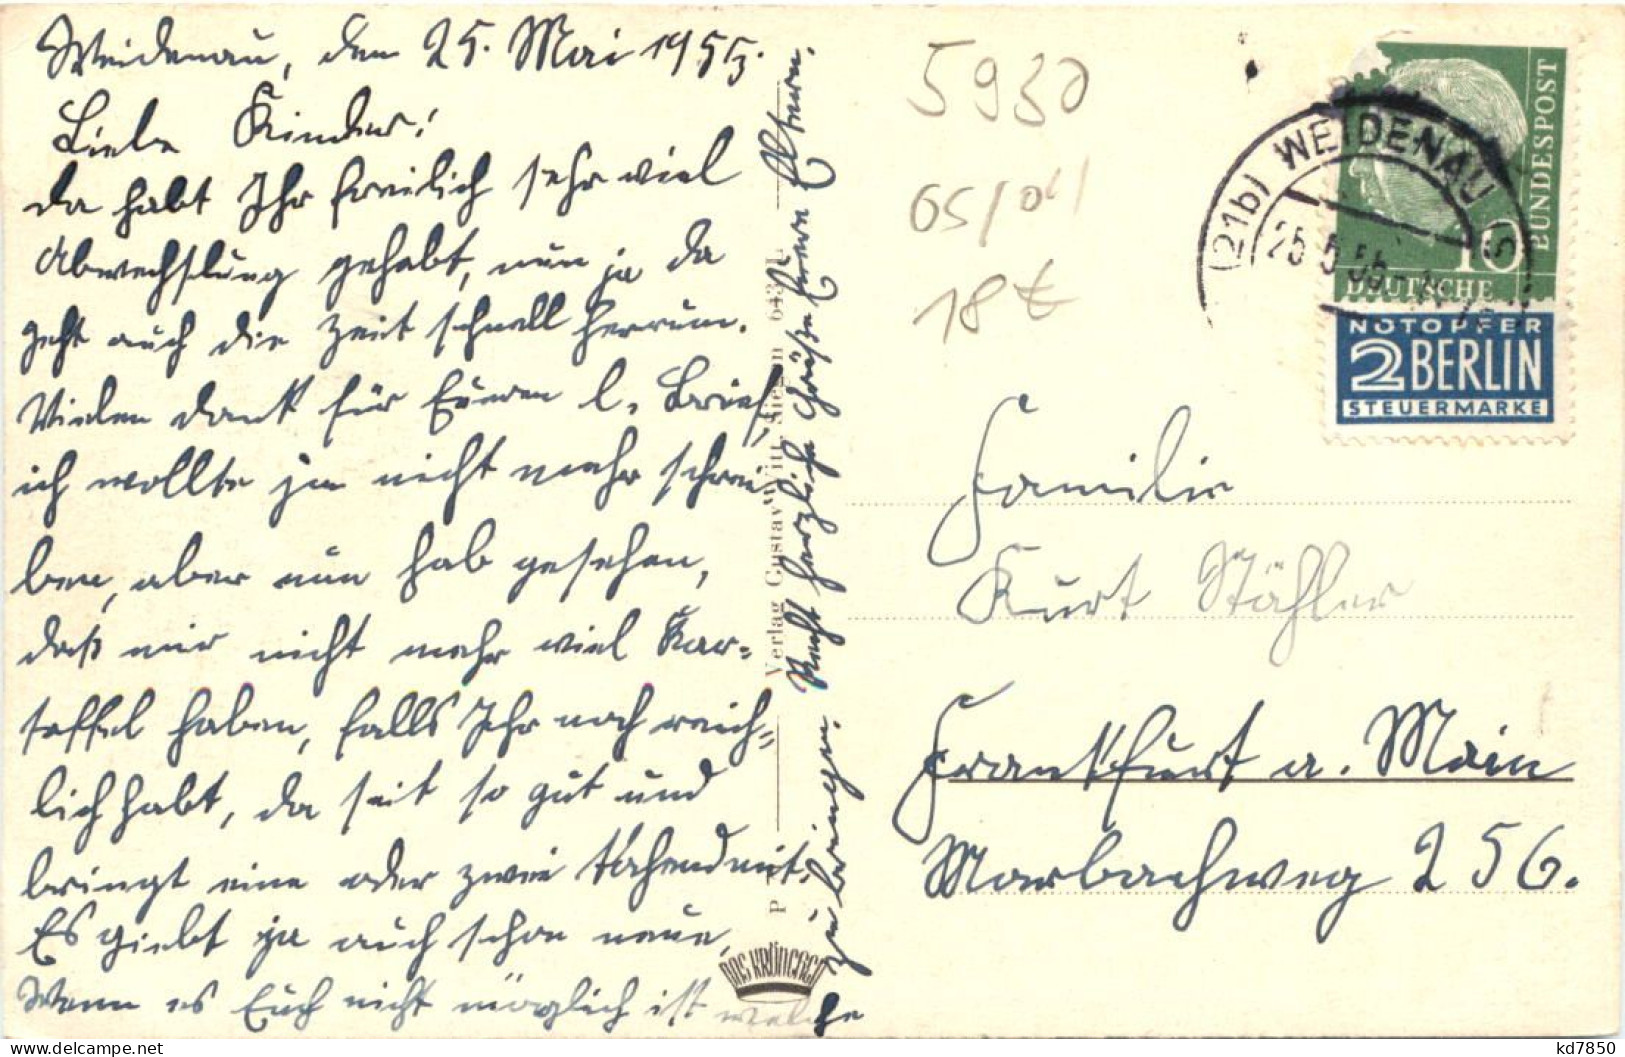 Weidenau, den 25. Mai 1955.
Liebe Kinder!
da habt Ihr freilich sehr viel
Abwechslung gehabt, nun ja da
geht auch die Zeit schnell herrum.
Vielen Dank für Eueren l. Brief,
ich wollte ja nicht mehr schrei
ben, aber nun hab gesehen,
daß wir nicht mehr viel Kar=
toffel haben, falls Ihr noch reich=
lich habt, da seit so gut und
bringt eine oder zwei mit.
Es giebt ja auch schon neue,
Wenn es Euch nicht möglich ist welche
zu bringen. Recht herzliche Grüße Eure Eltern.
Verlag Gustav Witt, Siegen
DAS KRÖNCHEN
5930
65/041
18 t
(21b) WEIDENAU
25.5.55
DEUTSCHE
BUNDESPOST
10
NOTOPFER
2 BERLIN
STEUERMARKE
Familie
Kurt Stähler
Frankfurt a. Main
Marbachweg 256.
kd7850